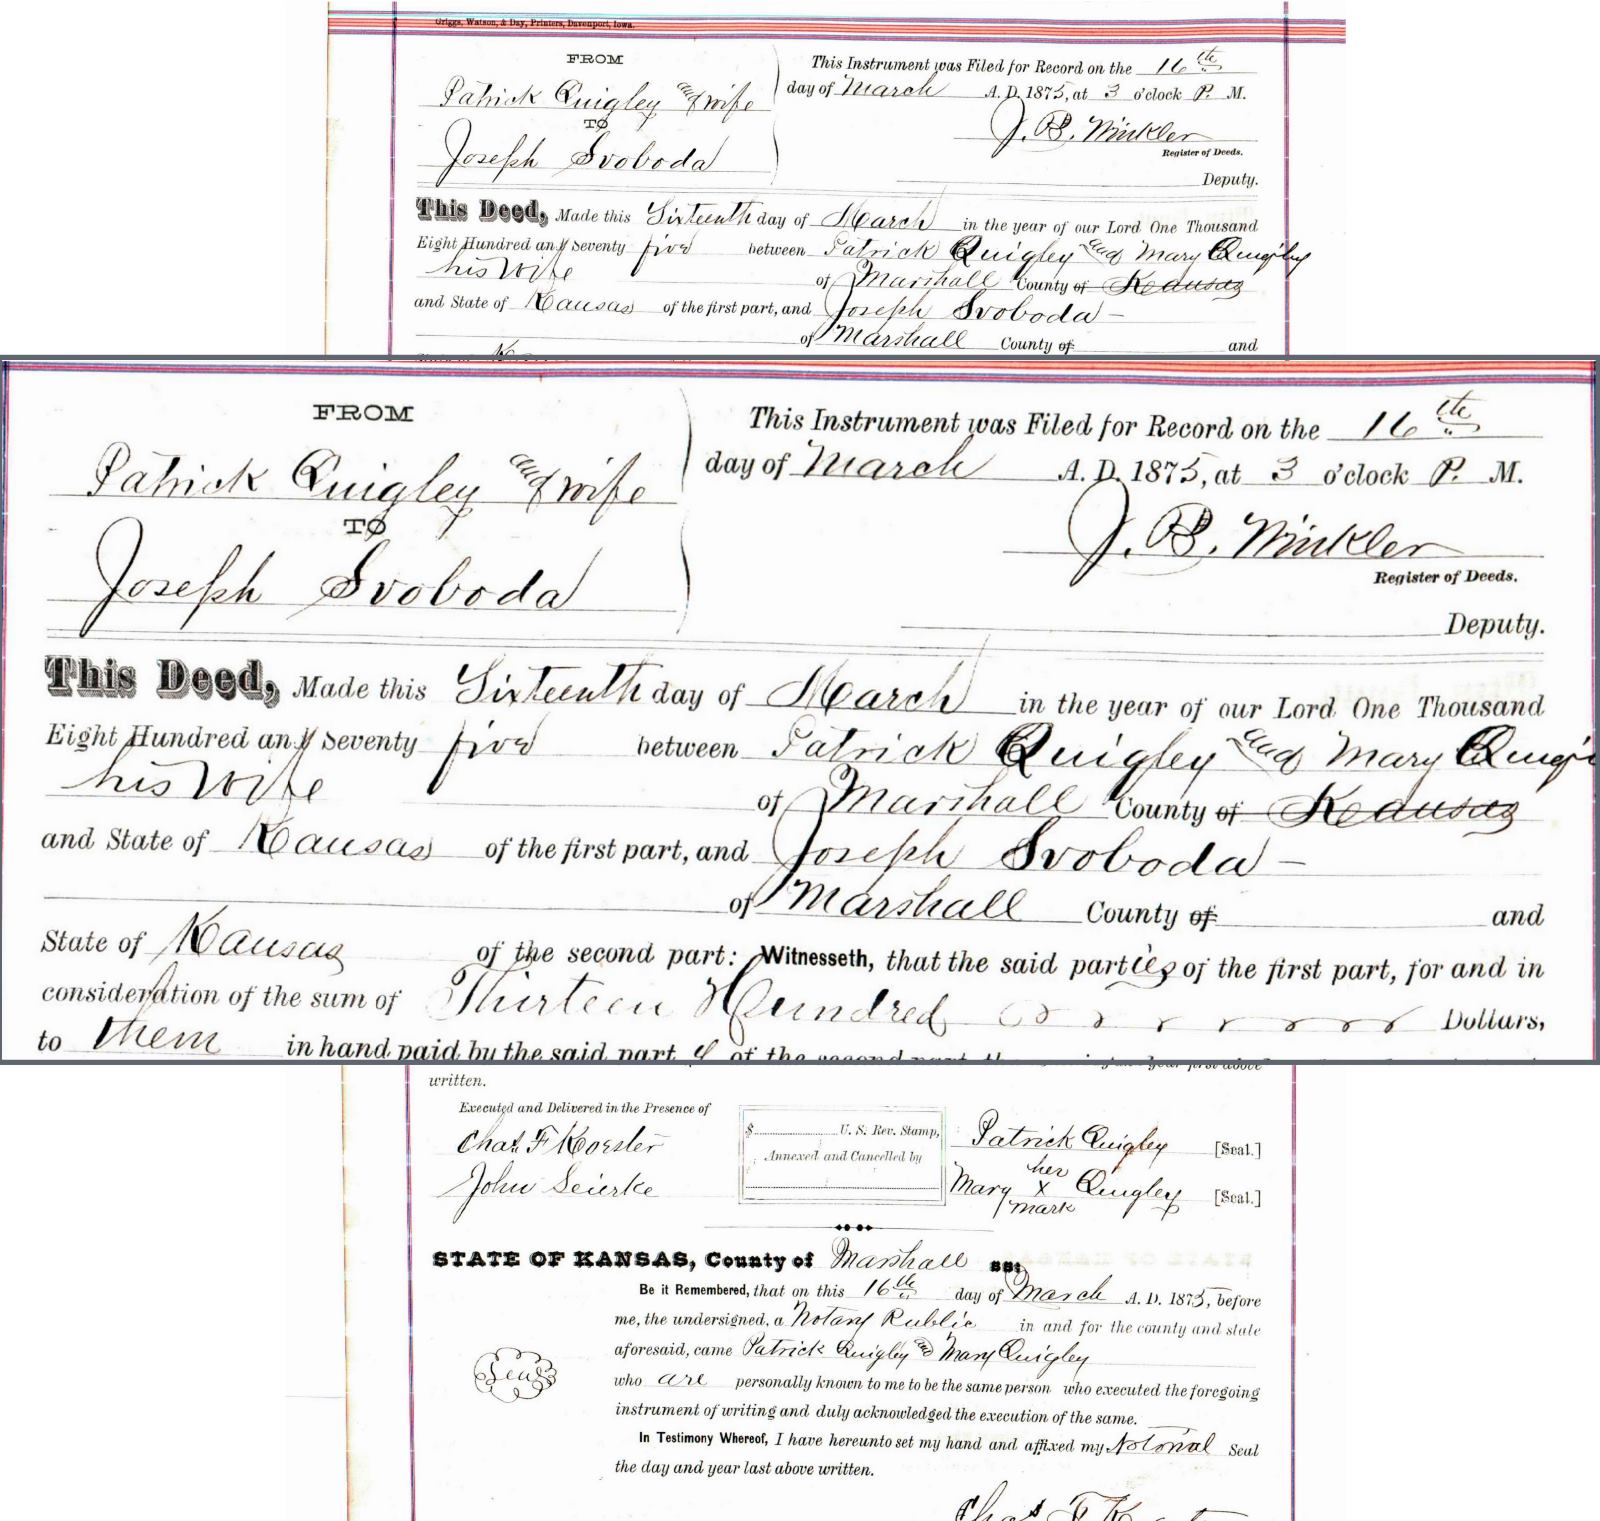 Griggs, Watson, & Day, Printers, Davenport, Iowa.
FROM
Patrick Quigley and wife
TO
Joseph Svoboda
This Instrument was Filed for Record on the 16th
day of March A. D. 1875, at 3 o'clock P. M.
J. B. Winkler
Register of Deeds.
Deputy.
This Deed, Made this Sixteenth day of March in the year of our Lord One Thousand
Eight Hundred and Seventy five between Patrick Quigley and Mary Quigley
his Wife of Marshall County of Kansas
and State of Kansas of the first part, and Joseph Svoboda
of Marshall County of and
FROM
Patrick Quigley and wife
TO
Joseph Svoboda
This Instrument was Filed for Record on the 16th
day of March A. D. 1875, at 3 o'clock P. M.
J. B. Winkler
Register of Deeds.
Deputy.
This Deed, Made this Sixteenth day of March in the year of our Lord One Thousand
Eight Hundred and Seventy five between Patrick Quigley and Mary Quigl
his Wife of Marshall County of Kansas
and State of Kansas of the first part, and Joseph Svoboda –
of Marshall County of and
State of Kansas of the second part: Witnesseth, that the said parties of the first part, for and in
consideration of the sum of Thirteen Hundred Dollars,
to them in hand paid by the said part y of the second part, the
written.
Executed and Delivered in the Presence of
Chas. F Koester
John
$ U. S. Rev. Stamp,
Annexed and Cancelled by
Patrick Quigley [Seal.]
her
Mary X Quigley [Seal.]
mark
STATE OF KANSAS, County of Marshall ss:
Be it Remembered, that on this 16th day of March A. D. 1875, before
me, the undersigned, a Notary Public in and for the county and state
aforesaid, came Patrick Quigley and Mary Quigley
who are personally known to me to be the same person who executed the foregoing
instrument of writing and duly acknowledged the execution of the same.
Seal
In Testimony Whereof, I have hereunto set my hand and affixed my Notorial Seal
the day and year last above written.